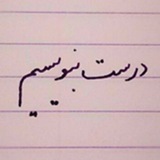 درست بنویسیم